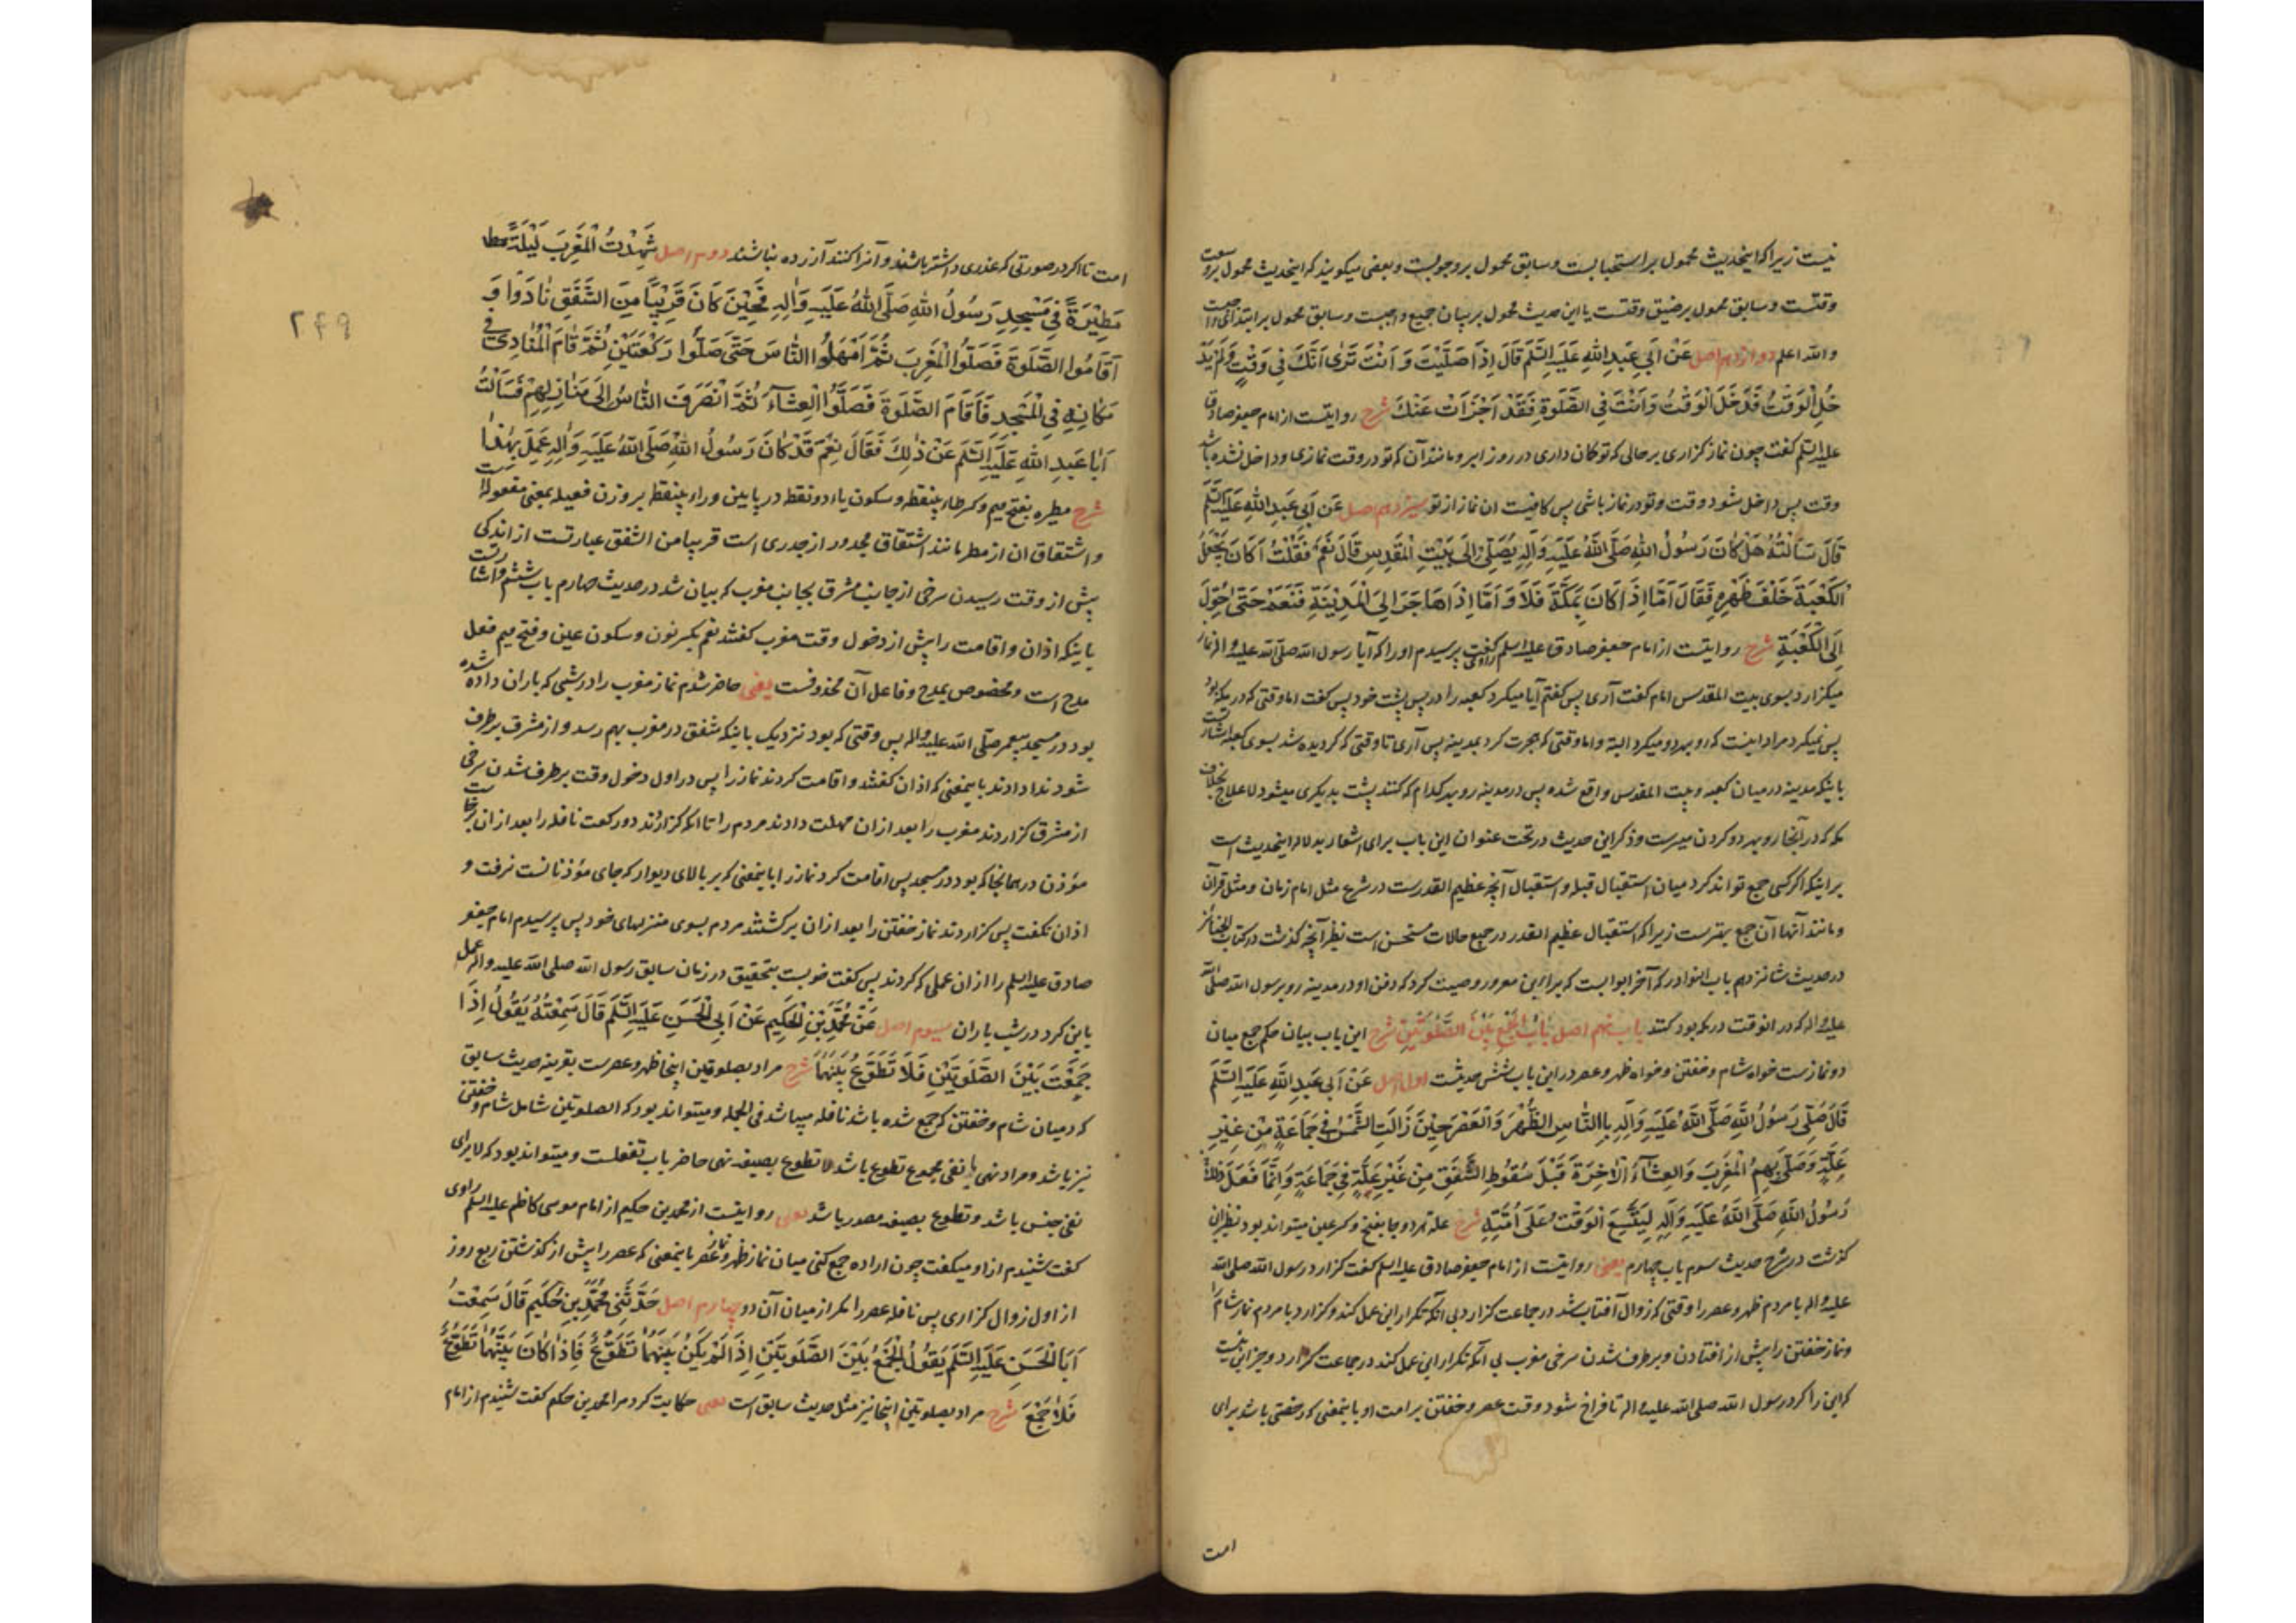 نیست زیرا که اینحدیث محمول بر استحبابست و سابق محمول بر وجوبست و بعضی میکویند که اینحدیث محمول بر وسعت
وقتست و سابق محمول بر ضیق وقتست یا این حدیث محمول بر بیان جمیع واجبست و سابق محمول بر ابتدای واجبست
والله اعلم دوازدهم اصل عَنْ اَبِي عَبْدِ اللهِ عَلَيْهِ السَّلَم قَالَ اِذَا صَلَّيْتَ وَ اَنْتَ تَرٰى اَنَّكَ فِي وَقْتٍ وَلَمْ يَدْ
خُلِ الْوَقْتُ فَدَخَلَ الْوَقْتُ وَاَنْتَ فِي الصَّلٰوةِ فَقَدْ اَجْزَاَتْ عَنْكَ شرح روایتست از امام جعفر صادق
علیه السلم کفت چون نماز کزاری بر حالی که تو کان داری در روز ابر و مانند آن که تو در وقت نمازی و داخل نشده باشد
وقت پس داخل شود وقت و تو در نماز باشی پس کافیست ان نماز از تو سیزدهم اصل عَنْ اَبِي عَبْدِ اللهِ عَلَيْهِ السَّلَم
قَالَ سَاَلْتُهُ هَلْ كَانَ رَسُولُ اللهِ صَلَّى اللهُ عَلَيْهِ وَاٰلِهِ يُصَلِّي اِلَى بَيْتِ الْمَقْدِسِ قَالَ نَعَمْ فَقُلْتُ اَكَانَ يَجْعَلُ
الْكَعْبَةَ خَلْفَ ظَهْرِهِ فَقَالَ اَمَّا اِذَا كَانَ بِمَكَّةَ فَلَا وَ اَمَّا اِذَا هَاجَرَ اِلَى الْمَدِيْنَةِ فَنَعَمْ حَتّٰى حُوِّلَ
اِلَى الْكَعْبَةِ شرح روایتست از امام جعفر صادق علیه السلم راوی کفت پرسیدم او را که آیا رسول الله صلی الله علیه و اله نماز
میکزارد بسوی بیت المقدس امام کفت آری پس کفتم آیا میکرد کعبه را در پس پشت خود پس کفت اما وقتی که در مکه بود
پس نمیکرد مراد اینست که رو بهر دو میکرد البته و اما وقتی که هجرت کرد بمدینه پس آری تا وقتی که کردیده شد بسوی کعبه اشارتست
باینکه مدینه در میان کعبه و بیت المقدس واقع شده پس در مدینه رو بهر کدام که کنند پشت بدیکری میشود لا علاج بخلاف
مکه که در آنجا رو بهر دو کردن میسرست و ذکر این حدیث در تحت عنوان این باب برای اشعار بدلاله اینحدیث است
بر اینکه اکر کسی جمع تواند کرد میان استقبال قبله و استقبال آنچه عظیم القدرست در شرع مثل امام زمان و مثل قرآن
و مانند آنها آن جمع بهترست زیرا که استقبال عظیم القدر در جمیع حالات مستحسن است نظیر آنچه کذشت در کتاب الجنائز
در حدیث شانزدهم باب النوادر که آخر ابوابست که براء بن معرور وصیت کرد که دفن او در مدینه رو برسول الله صلی الله
علیه و اله که در انوقت در مکه بود کنند باب نهم اصل بَابُ الْجَمْعِ بَيْنَ الصَّلٰوتَيْنِ شرح این باب بیان حکم جمع میان
دو نمازست خواه شام و خفتن و خواه ظهر و عصر در این باب شش حدیثست اول اصل عَنْ اَبِي عَبْدِ اللهِ عَلَيْهِ السَّلَم
قَالَ صَلّٰى رَسُولُ اللهِ صَلَّى اللهُ عَلَيْهِ وَاٰلِهِ بِالنَّاسِ الظُّهْرَ وَالْعَصْرَ حِيْنَ زَالَتِ الشَّمْسُ فِي جَمَاعَةٍ مِنْ غَيْرِ
عِلَّةٍ وَصَلّٰى بِهِمُ الْمَغْرِبَ وَالْعِشَاءَ الْاٰخِرَةَ قَبْلَ سُقُوطِ الشَّفَقِ مِنْ غَيْرِ عِلَّةٍ فِي جَمَاعَةٍ وَاِنَّمَا فَعَلَ ذٰلِكَ
رَسُولُ اللهِ صَلَّى اللهُ عَلَيْهِ وَاٰلِهِ لِيَتَّسِعَ الْوَقْتُ عَلٰى اُمَّتِهِ شرح علة هر دو جا بفتح و کسر عین میتواند بود نظیر این
کذشت در شرح حدیث سوم باب چهارم یعنی روایتست از امام جعفر صادق علیه السلم کفت کزارد رسول الله صلی الله
علیه و اله با مردم ظهر و عصر را وقتی که زوال آفتاب شد در جماعت کزارد بی آنکه تکرار این عمل کند و کزارد با مردم نماز شام را
و نماز خفتن را پیش از افتادن و برطرف شدن سرخی مغرب بی آنکه تکرار این عمل کند در جماعت کزارد و جز این نیست
که این را کرد رسول الله صلی الله علیه و اله تا فراخ شود وقت عصر و خفتن بر امت او باینمعنی که رخصتی باشد برای
امت
۲۴۹
امت تا اکر در صورتی که عذری داشته باشند و آنرا کنند آزرده نباشند دوم اصل شَهِدْتُ الْمَغْرِبَ لَيْلَةً
مَطِيْرَةً فِي مَسْجِدِ رَسُولُ اللهِ صَلَّى اللهُ عَلَيْهِ وَاٰلِهِ فَحِيْنَ كَانَ قَرِيْبًا مِنَ الشَّفَقِ نَادَوْا وَ
اَقَامُوا الصَّلٰوةَ فَصَلَّوُا الْمَغْرِبَ ثُمَّ اَمْهَلُوا النَّاسَ حَتّٰى صَلَّوْا رَكْعَتَيْنِ ثُمَّ قَامَ الْمُنَادِي فِي
مَكَانِهِ فِي الْمَسْجِدِ فَاَقَامَ الصَّلٰوةَ فَصَلَّوُا الْعِشَاءَ ثُمَّ انْصَرَفَ النَّاسُ اِلَى مَنَازِلِهِمْ فَسَاَلْتُ
اَبَا عَبْدِ اللهِ عَلَيْهِ السَّلَم عَنْ ذٰلِكَ فَقَالَ نِعْمَ قَدْ كَانَ رَسُولُ اللهِ صَلَّى اللهُ عَلَيْهِ وَاٰلِهِ عَمِلَ بِهٰذَا
شرح مطیره بفتح میم و کسر طاء بینقطه و سکون یاء دو نقطه در پایین و راء بینقطه بر وزن فعیله بمعنی مفعوله است
و اشتقاق ان از مطر مانند اشتقاق مجدور از جدری است قریبا من الشفق عبارتست از اندکی
پیش از وقت رسیدن سرخی از جانب مشرق بجانب مغرب که بیان شد در حدیث چهارم باب ششم و اشارتست
باینکه اذان و اقامت را پیش از دخول وقت مغرب کفتند نعم بکسر نون و سکون عین و فتح میم فعل
مدح است و مخصوص بمدح و فاعل آن محذوفست یعنی حاضر شدم نماز مغرب را در شبی که باران داده شده
بود در مسجد پیغمبر صلی الله علیه و اله پس وقتی که بود نزدیک باینکه شفق در مغرب بهم رسد و از مشرق برطرف
شود ندا دادند باینمعنی که اذان کفتند و اقامت کردند نماز را پس در اول دخول وقت برطرف شدن سرخی
از مشرق کزاردند مغرب را بعد ازان مهلت دادند مردم را تا آنکه کزاردند دو رکعت نافله را بعد ازان برخاست
مؤذن در همانجا که بود در مسجد پس اقامت کرد نماز را باینمعنی که بر بالای دیوار که جای مؤذنانست نرفت و
اذان نکفت پس کزاردند نماز خفتن را بعد ازان برکشتند مردم بسوی منزلهای خود پس پرسیدم امام جعفر
صادق علیه السلم را ازان عملی که کردند پس کفت خوبست بتحقیق در زمان سابق رسول الله صلی الله علیه و اله عمل
باین کرد در شب باران سیوم اصل عَنْ مُحَمَّدِ بْنِ الْحَكِيْمِ عَنْ اَبِي الْحَسَنِ عَلَيْهِ السَّلَم قَالَ سَمِعْتُهُ يَقُولُ اِذَا
جَمَعْتَ بَيْنَ الصَّلٰوتَيْنِ فَلَا تَطَوَّعْ بَيْنَهُمَا شرح مراد بصلوتین اینجا ظهر و عصرست بقرینه حدیث سابق
که در میان شام و خفتن که جمع شده باشد نافله میباشد فی الجمله و میتواند بود که الصلوتین شامل شام و خفتن
نیز باشد و مراد نهی یا نفی مجموع تطوع باشد لا تطوع بصیغه نهی حاضر باب تفعلست و میتواند بود که لا برای
نفی جنس باشد و تطوع بصیغه مصدر باشد یعنی روایتست از محمد بن حکیم از امام موسی کاظم علیه السلم راوی
کفت شنیدم از او میکفت چون اراده جمع کنی میان نماز ظهر و نماز عصر باینمعنی که عصر را پیش از کذشتن ربع روز
از اول زوال کزاری پس نافله عصر را مکزار میان آن دو چهارم اصل حَدَّثَنِي مُحَمَّدِ بْنِ حُكَيْمٍ قَالَ سَمِعْتُ
اَبَا الْحَسَنِ عَلَيْهِ السَّلَم يَقُولُ الْجَمْعُ بَيْنَ الصَّلٰوتَيْنِ اِذَا لَمْ يَكُنْ بَيْنَهُمَا تَطَوُّعٌ فَاِذَا كَانَ بَيْنَهُمَا تَطَوُّعٌ
فَلَا جَمْعَ شرح مراد بصلوتین اینجا نیز مثل حدیث سابق است یعنی حکایت کرد مرا محمد بن حکیم کفت شنیدم از امام